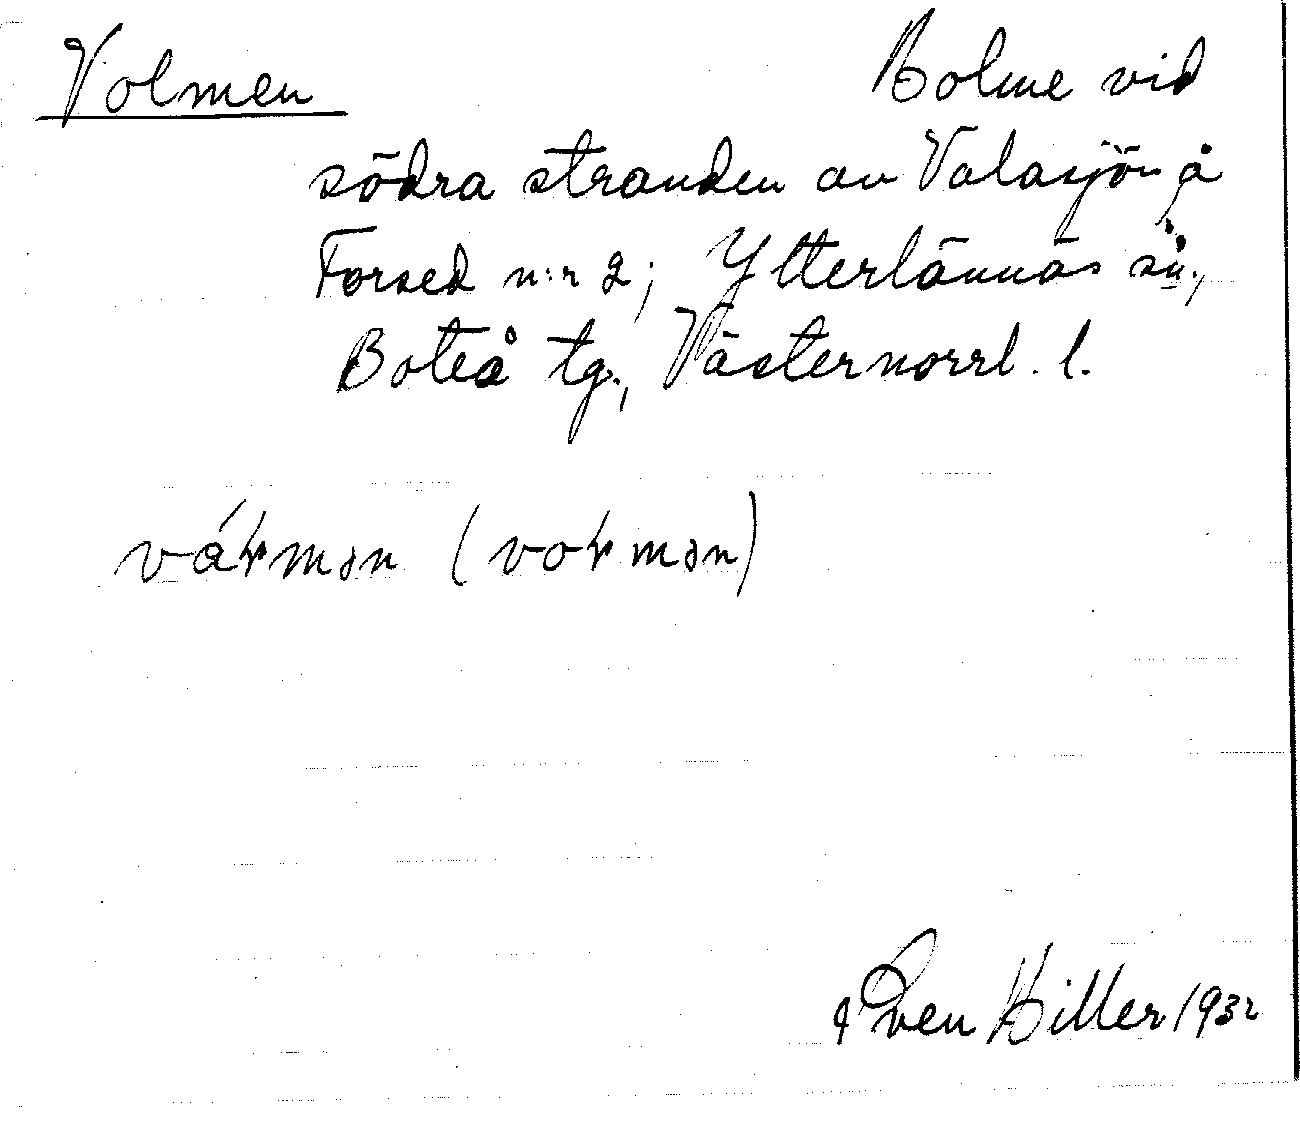 Volmen Holme vid
södra stranden av Valasjön å
Forsed n:r 2; Ytterlännäs sn.,
Boteå tg., Västernorrl. l.
vármən (vormən)
Sven Hiller 1932